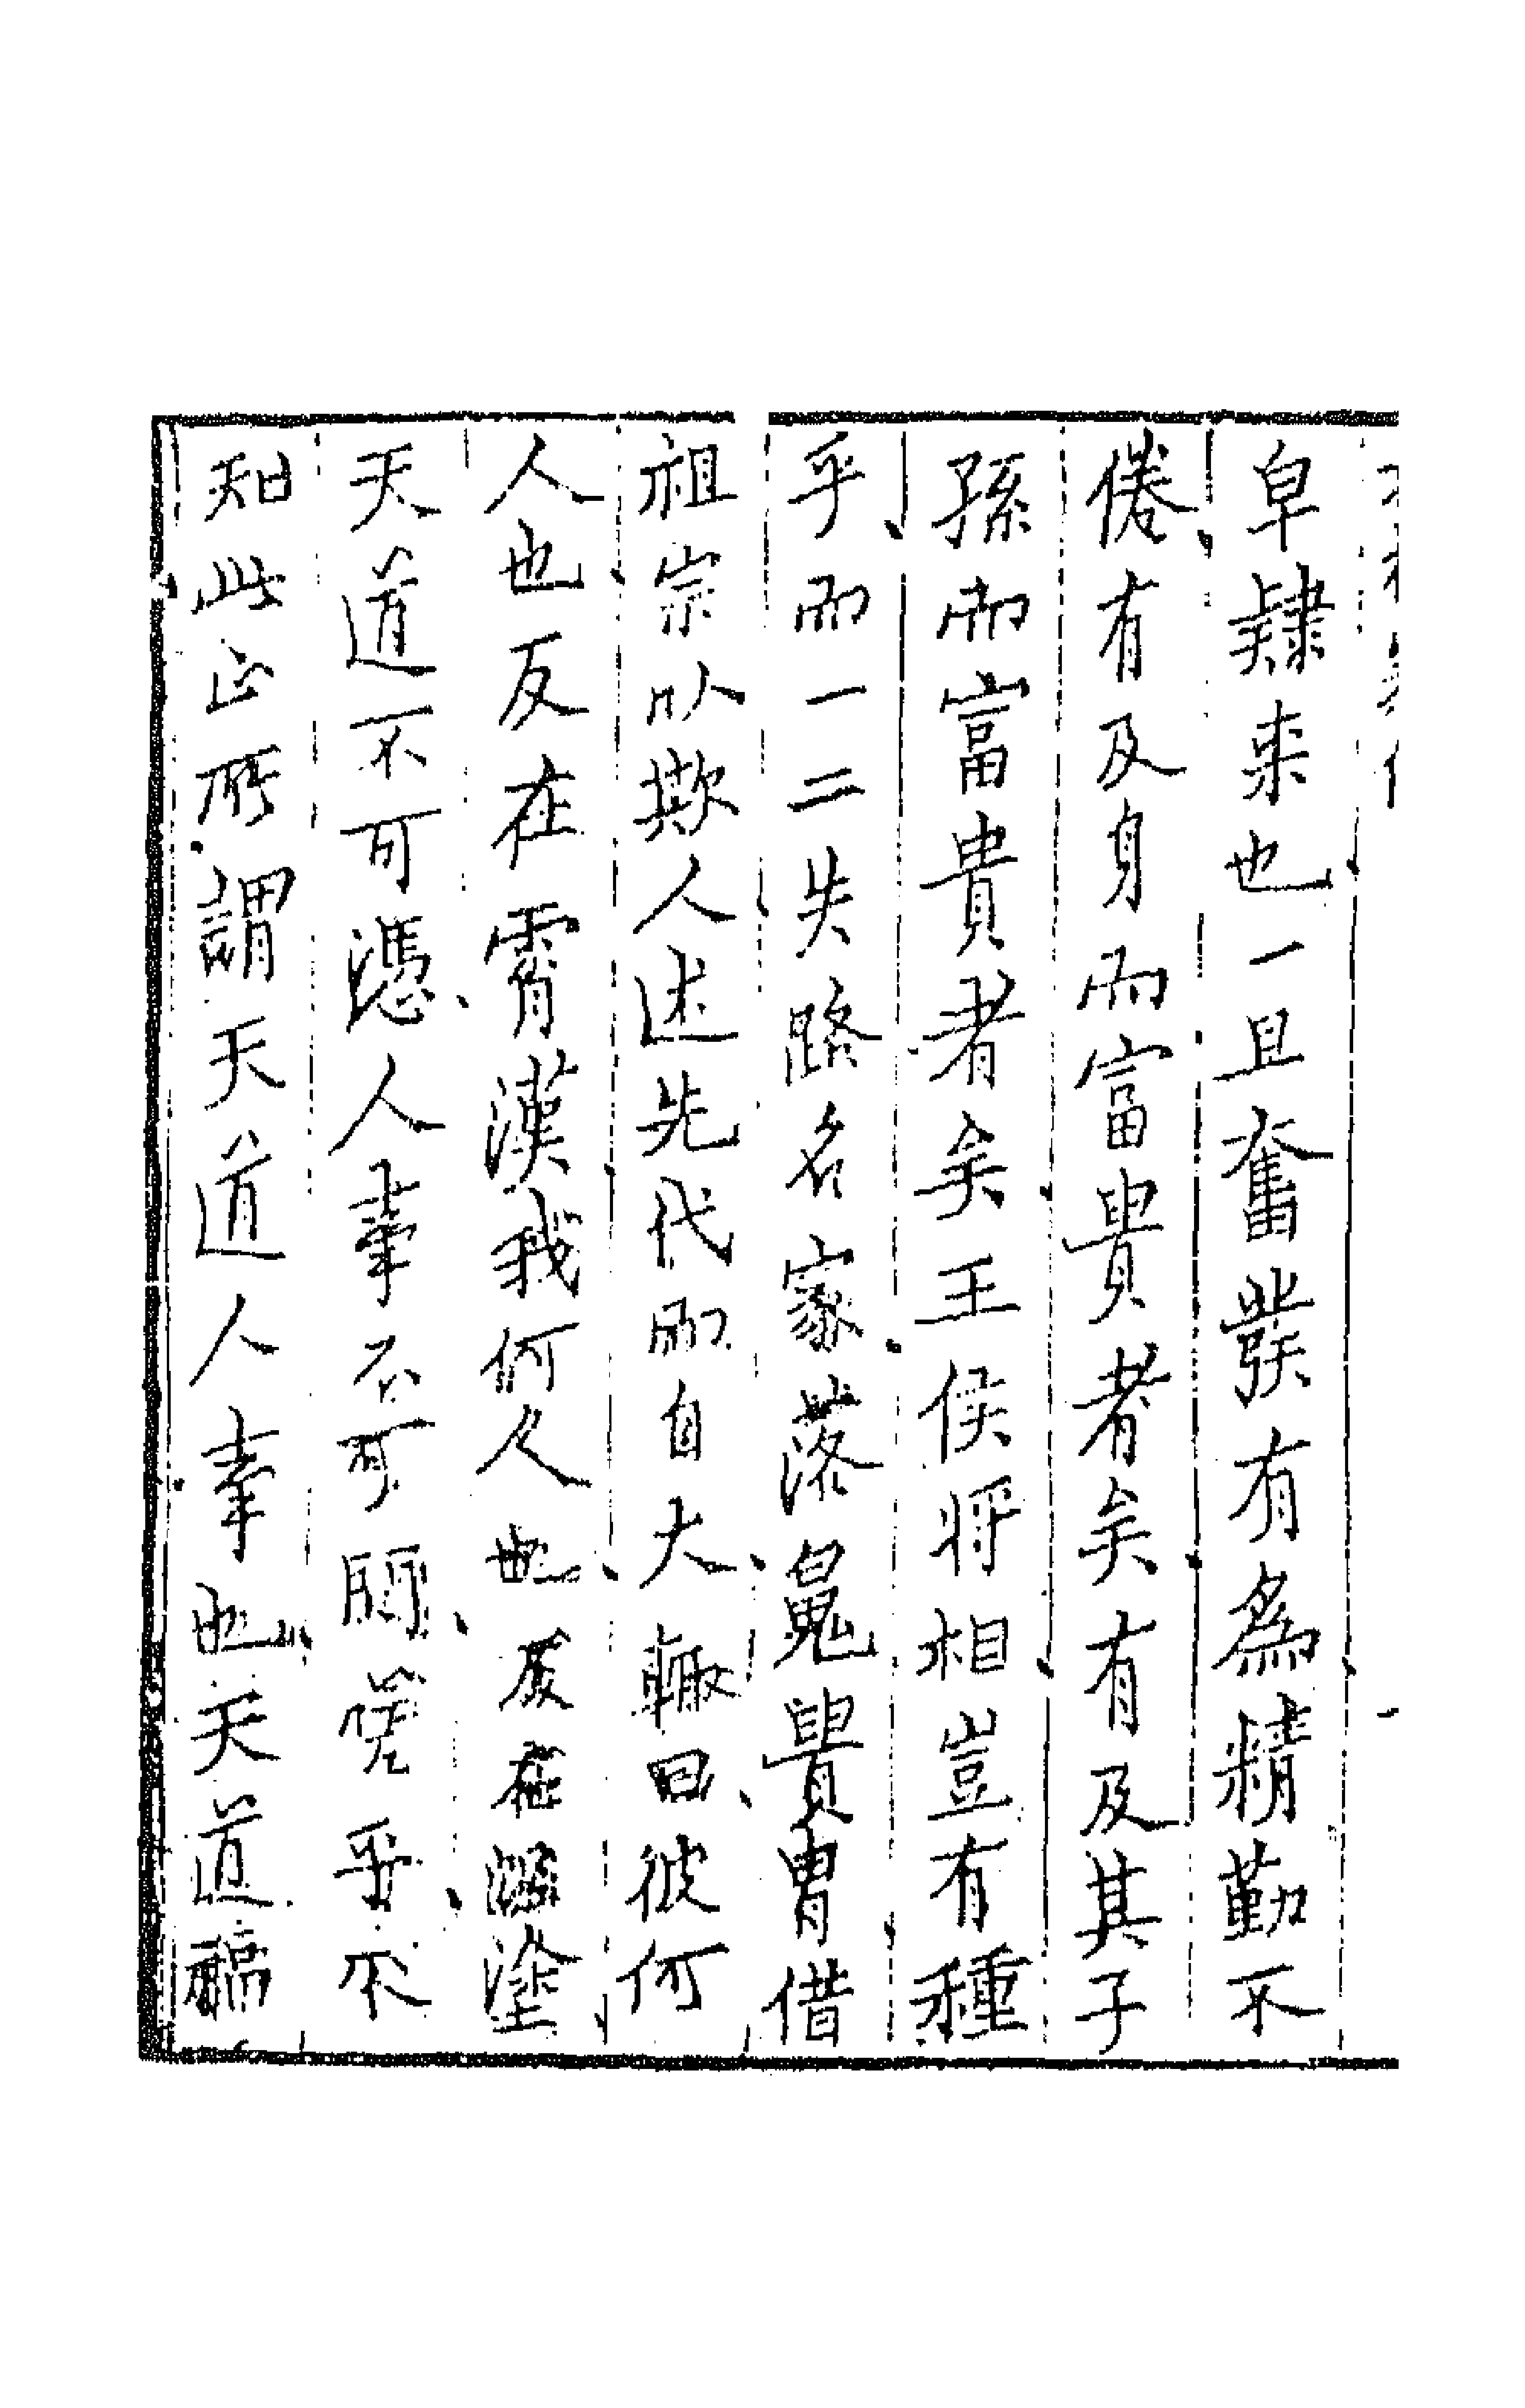 皁隸来也一旦奮發有為精勤不
倦有及身而富貴者矣有及其子
孫而富貴者矣王侯将相豈有種
乎而一二失路名家落魄貴胄借
祖宗以欺人述先代而自大輙曰彼何
人也反在霄漢我何人也反在泥塗
天道不可憑人事不可問嗟乎不
知此正所謂天道人事也天道福